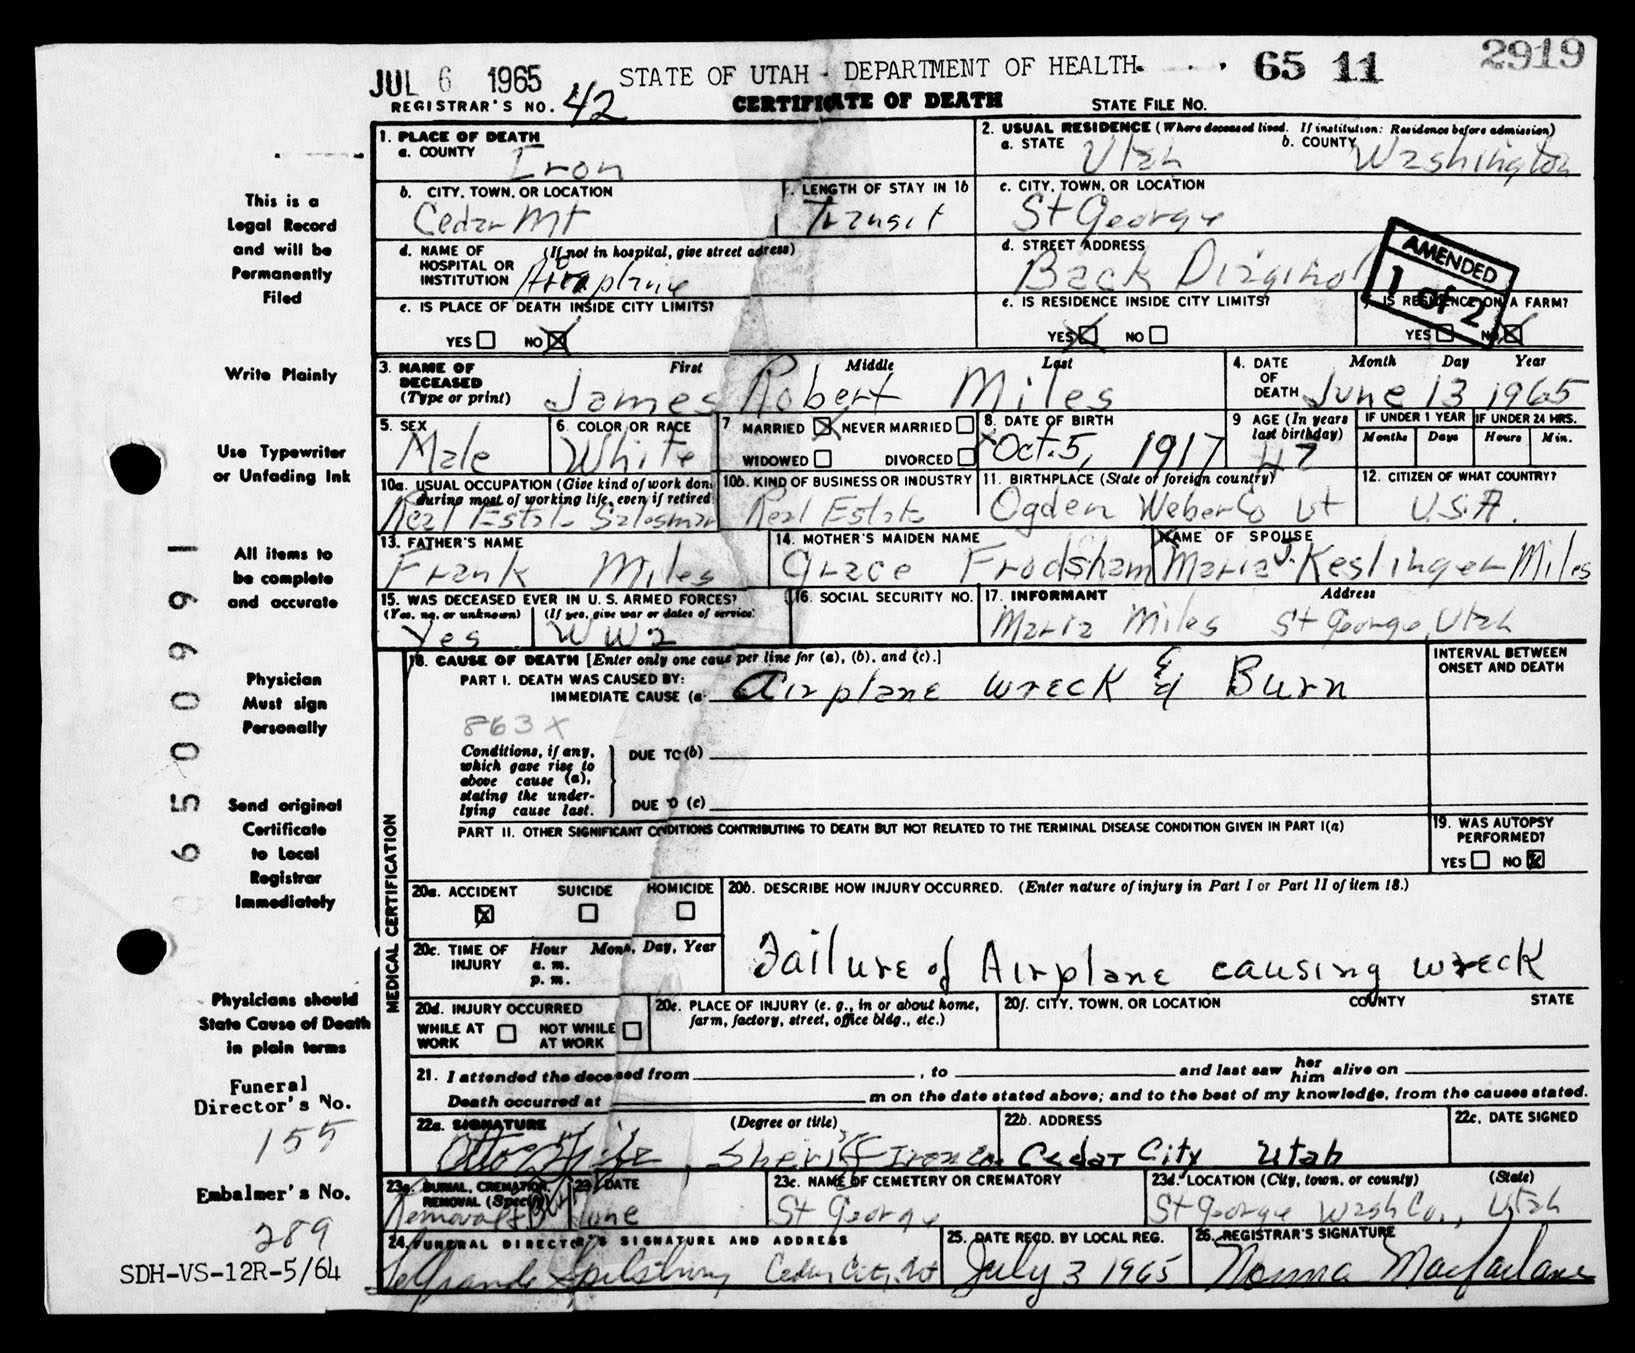 JUL 6 1965 STATE OF UTAH - DEPARTMENT OF HEALTH 65 11 2919
REGISTRAR'S NO. 42 CERTIFICATE OF DEATH STATE FILE NO.
1. PLACE OF DEATH
a. COUNTY Iron
2. USUAL RESIDENCE (Where deceased lived. If institution: Residence before admission)
a. STATE Utah b. COUNTY Washington
b. CITY, TOWN, OR LOCATION Cedar Mt
LENGTH OF STAY IN 1b Transit
c. CITY, TOWN, OR LOCATION St George
d. NAME OF HOSPITAL OR INSTITUTION (If not in hospital, give street adress) Airplane
d. STREET ADDRESS
AMENDED
1 of 2
e. IS PLACE OF DEATH INSIDE CITY LIMITS?
YES NO
e. IS RESIDENCE INSIDE CITY LIMITS?
YES NO
IS RESIDENCE ON A FARM?
YES NO
3. NAME OF DECEASED (Type or print) First Middle Last
James Robert Miles
4. DATE OF DEATH Month Day Year
June 13 1965
5. SEX Male
6. COLOR OR RACE White
7 MARRIED NEVER MARRIED
WIDOWED DIVORCED
8. DATE OF BIRTH Oct. 5, 1917
9 AGE (In years last birthday) 47
IF UNDER 1 YEAR IF UNDER 24 HRS.
Months Days Hours Min.
10a. USUAL OCCUPATION (Give kind of work done during most of working life, even if retired) Real Estate Salesman
10b. KIND OF BUSINESS OR INDUSTRY Real Estate
11. BIRTHPLACE (State or foreign country) Ogden Weber Co Ut
12. CITIZEN OF WHAT COUNTRY? U.S.A.
13. FATHER'S NAME Frank Miles
14. MOTHER'S MAIDEN NAME Grace Frodsham
NAME OF SPOUSE Maria J. Keslinger Miles
15. WAS DECEASED EVER IN U.S. ARMED FORCES?
(Yes, no, or unknown) (If yes, give war or dates of service)
Yes WW2
16. SOCIAL SECURITY NO.
17. INFORMANT Address
Maria Miles St George, Utah
18. CAUSE OF DEATH [Enter only one cause per line for (a), (b), and (c).]
PART I. DEATH WAS CAUSED BY:
IMMEDIATE CAUSE (a) Airplane wreck & Burn
INTERVAL BETWEEN ONSET AND DEATH
863X
Conditions, if any, which gave rise to above cause (a), stating the under-lying cause last.
DUE TO (b)
DUE TO (c)
PART II. OTHER SIGNIFICANT CONDITIONS CONTRIBUTING TO DEATH BUT NOT RELATED TO THE TERMINAL DISEASE CONDITION GIVEN IN PART I(a)
19. WAS AUTOPSY PERFORMED?
YES NO
20a. ACCIDENT SUICIDE HOMICIDE
20b. DESCRIBE HOW INJURY OCCURRED. (Enter nature of injury in Part I or Part II of item 18.)
Failure of Airplane causing wreck
20c. TIME OF INJURY Hour Month, Day, Year
a. m.
p. m.
20d. INJURY OCCURRED
WHILE AT WORK NOT WHILE AT WORK
20e. PLACE OF INJURY (e. g., in or about home, farm, factory, street, office bldg., etc.)
20f. CITY, TOWN, OR LOCATION COUNTY STATE
21. I attended the deceased from , to and last saw her him alive on
Death occurred at m on the date stated above; and to the best of my knowledge, from the causes stated.
22a. SIGNATURE (Degree or title)
Otto Fife, Sheriff Iron Co.
22b. ADDRESS Cedar City Utah
22c. DATE SIGNED
23a. BURIAL, CREMATION, REMOVAL (Specify) Removal
23b. DATE June
23c. NAME OF CEMETERY OR CREMATORY St George
23d. LOCATION (City, town, or county) (State)
St George Wash Co., Utah
24. FUNERAL DIRECTOR'S SIGNATURE AND ADDRESS
LeGrande Spilsbury Cedar City, Ut
25. DATE RECD. BY LOCAL REG. July 3 1965
26. REGISTRAR'S SIGNATURE Norma Macfarlane
MEDICAL CERTIFICATION
This is a
Legal Record
and will be
Permanently
Filed
Write Plainly
Use Typewriter
or Unfading Ink
All items to
be complete
and accurate
Physician
Must sign
Personally
Send original
Certificate
to Local
Registrar
Immediately
Physicians should
State Cause of Death
in plain terms
Funeral
Director's No.
155
Embalmer's No.
289
SDH-VS-12R-5/64
06500991